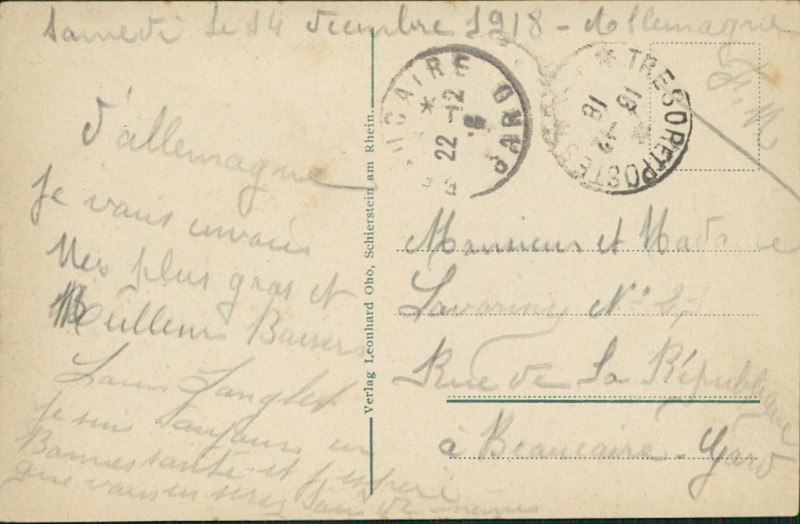 Samedi le 14 decembre 1918 - Allemagne
F. M
d'allemagne
Je vous envois
Mes plus gros et
Meilleurs Baisers
Louis Langlet
Je suis toujours en
Bonne santé et j'espere
que vous en serez tous de mêmes
Verlag Leonhard Oho, Schierstein am Rhein.
22 -12
GARD
* TRESOR ET POSTES
16 -12
18
Monsieur et Madame
N° 21
Rue de La République
à Beaucaire - Gard